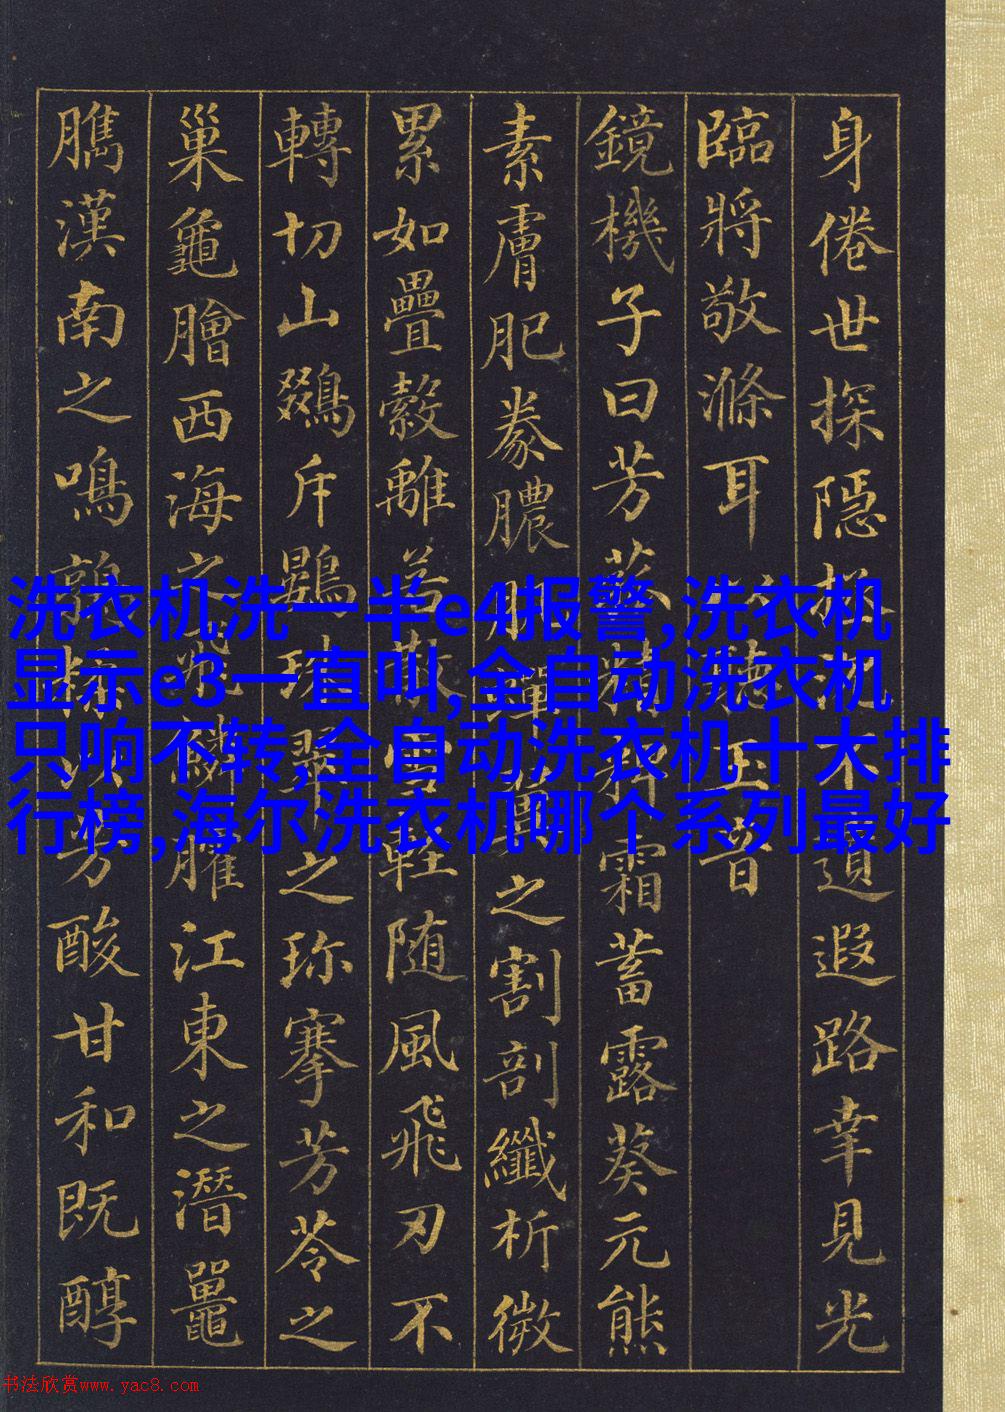 身倦世探隱拯沉不遠遐路幸見光
臨將敬滌耳以聽玉音
鏡機子曰芳菰精粺霜蓄露葵元熊
素膚肥豢膿肌蟬翼之割剖纖析微
累如疊縠離若散雪輕随風飛刃不
轉切山鵽斥鷃珠翠之珍搴芳苓之
巢龜膾西海之飛鱗臛江東之潛鼉
臇漢南之鳴鶉糅以芳酸甘和既醇
洗衣机洗一半e4报警,洗衣机
显示e3一直叫,全自动洗衣机
只响不转,全自动洗衣机十大排
行榜,海尔洗衣机哪个系列最好
书法欣赏www.yac8.com